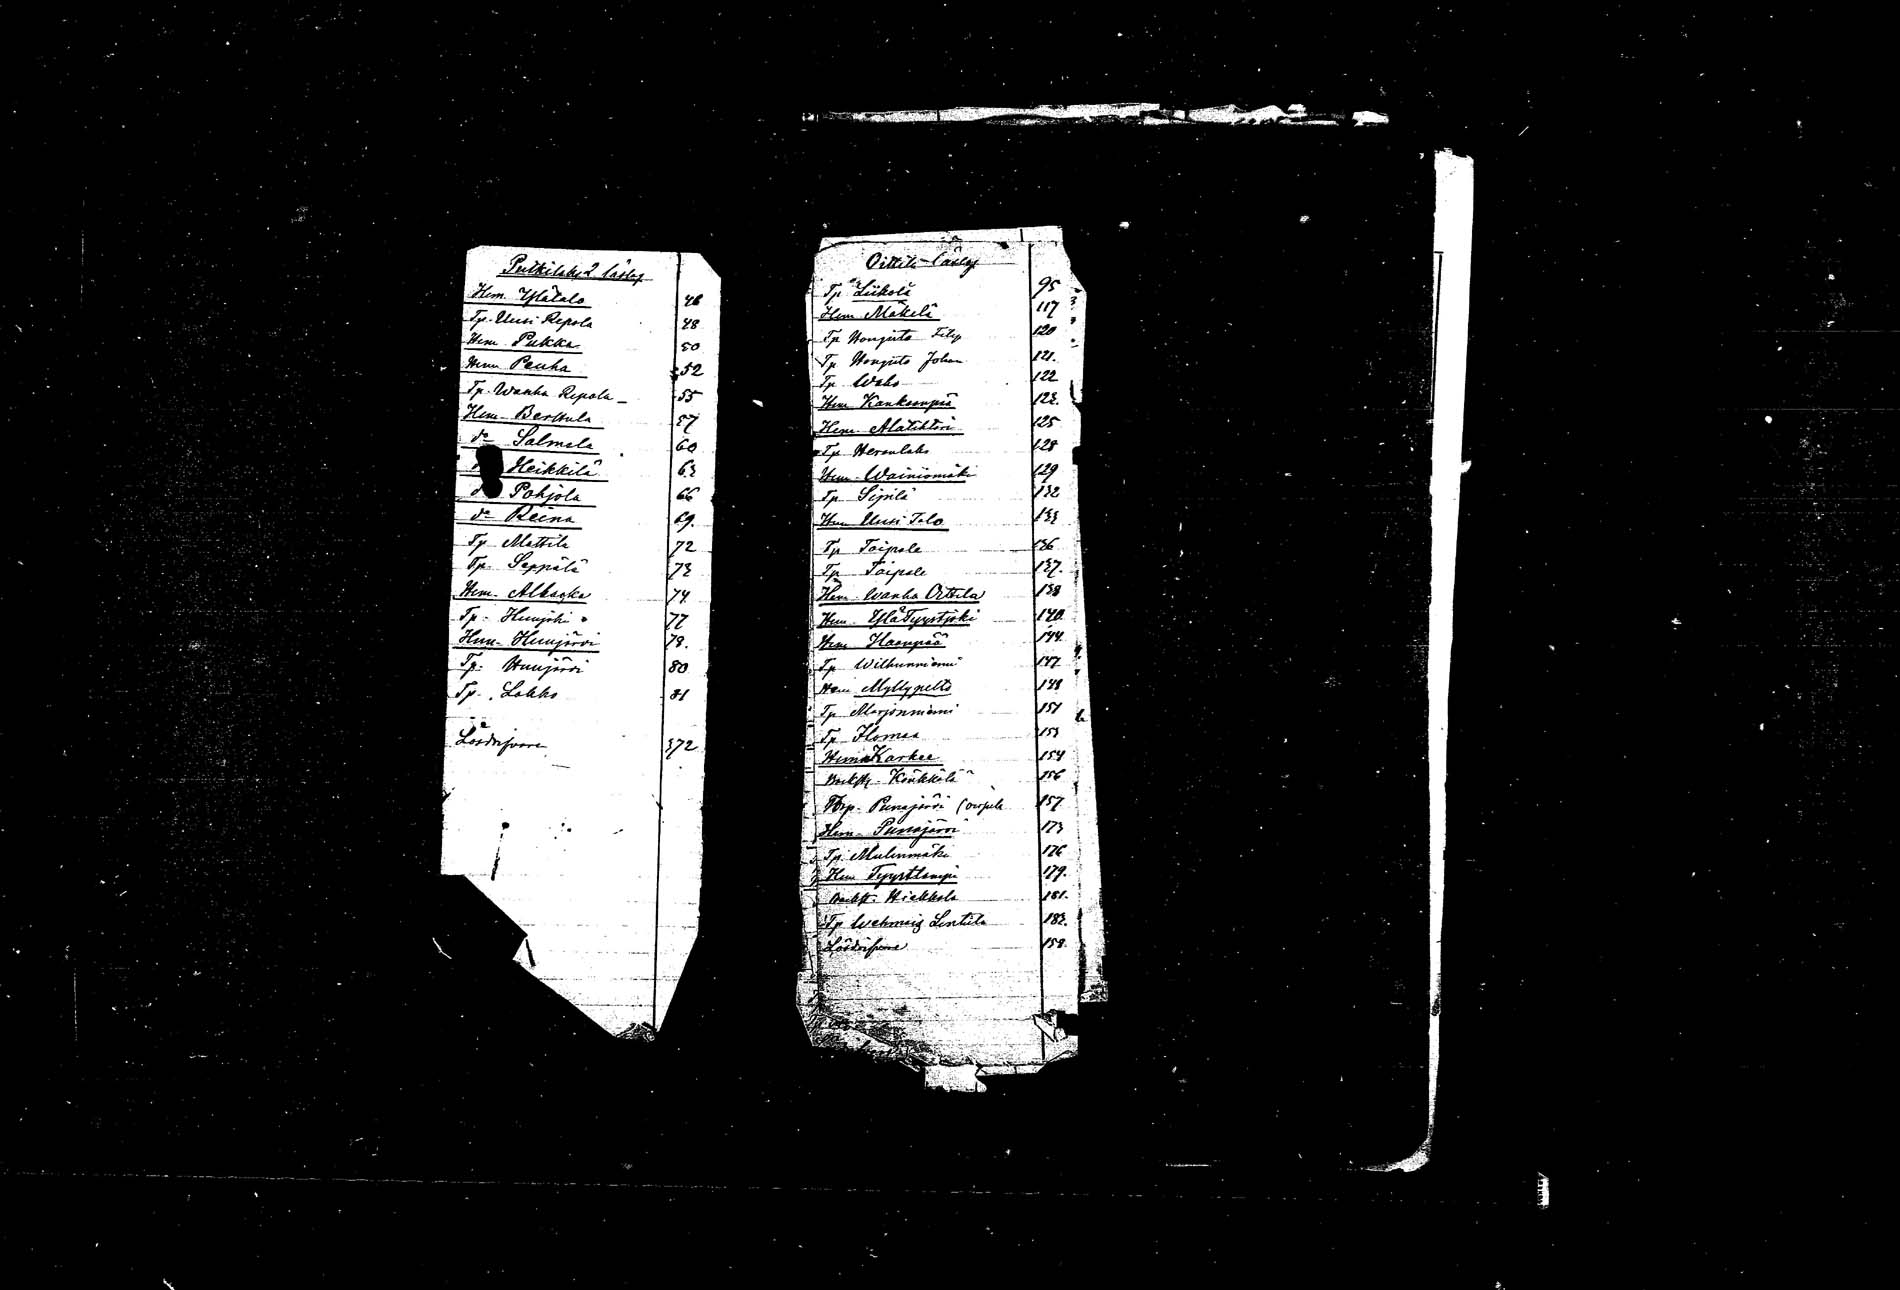 Putkilaks 2 läslag
Hem. Ylätalo 46
Tp. Uusi Repola 48
Hem. Pukka 50
Hem Penha 52
Tp. Wanha Repola 55
Hem. Berttula 57
do Salmela 60
Heikkilä 63
do Pohjola 66
do Reina 69
Tp Mattila 72
Tp. Seppälä 73
Hem. Albacka 74
Tp. Huujoki 77
Hem. Huujärvi 78.
Tp. Huujärvi 80
Tp. Lakko 81
Lösdrifvare 372
Oittila läslag
Tp Liikola 95
Hem Mäkelä 117
Tp Honjuto Filip 120
Tp Honjuto Johan 121.
Tp Waho 122
Hem Kankaanpää 123.
Hem. Alatiktori 125
Tp 128
Hem. Wainiomäki 129
Tp Sipilä 132
Hem Uusi Talo 133
Tp Taipale 136
Tp Taipale 137.
Hem Wanha Oittila 138
Hem. YläTyystjoki 140
Hem Haanpää 144.
Tp Wilhunniemi 147
Hem Myllypelto 148
Tp Marjonniemi 151
Tp Ilomaa 153
Hem Karkee 154
Känkkölä 156
Punajärvi 157
Hem. Punajärvi 173
Tp. Mulinmäki 176
Hem Tyystlampi 179.
Hiekkala 181.
Tp Lintula 183.
Lösdrifvare 158